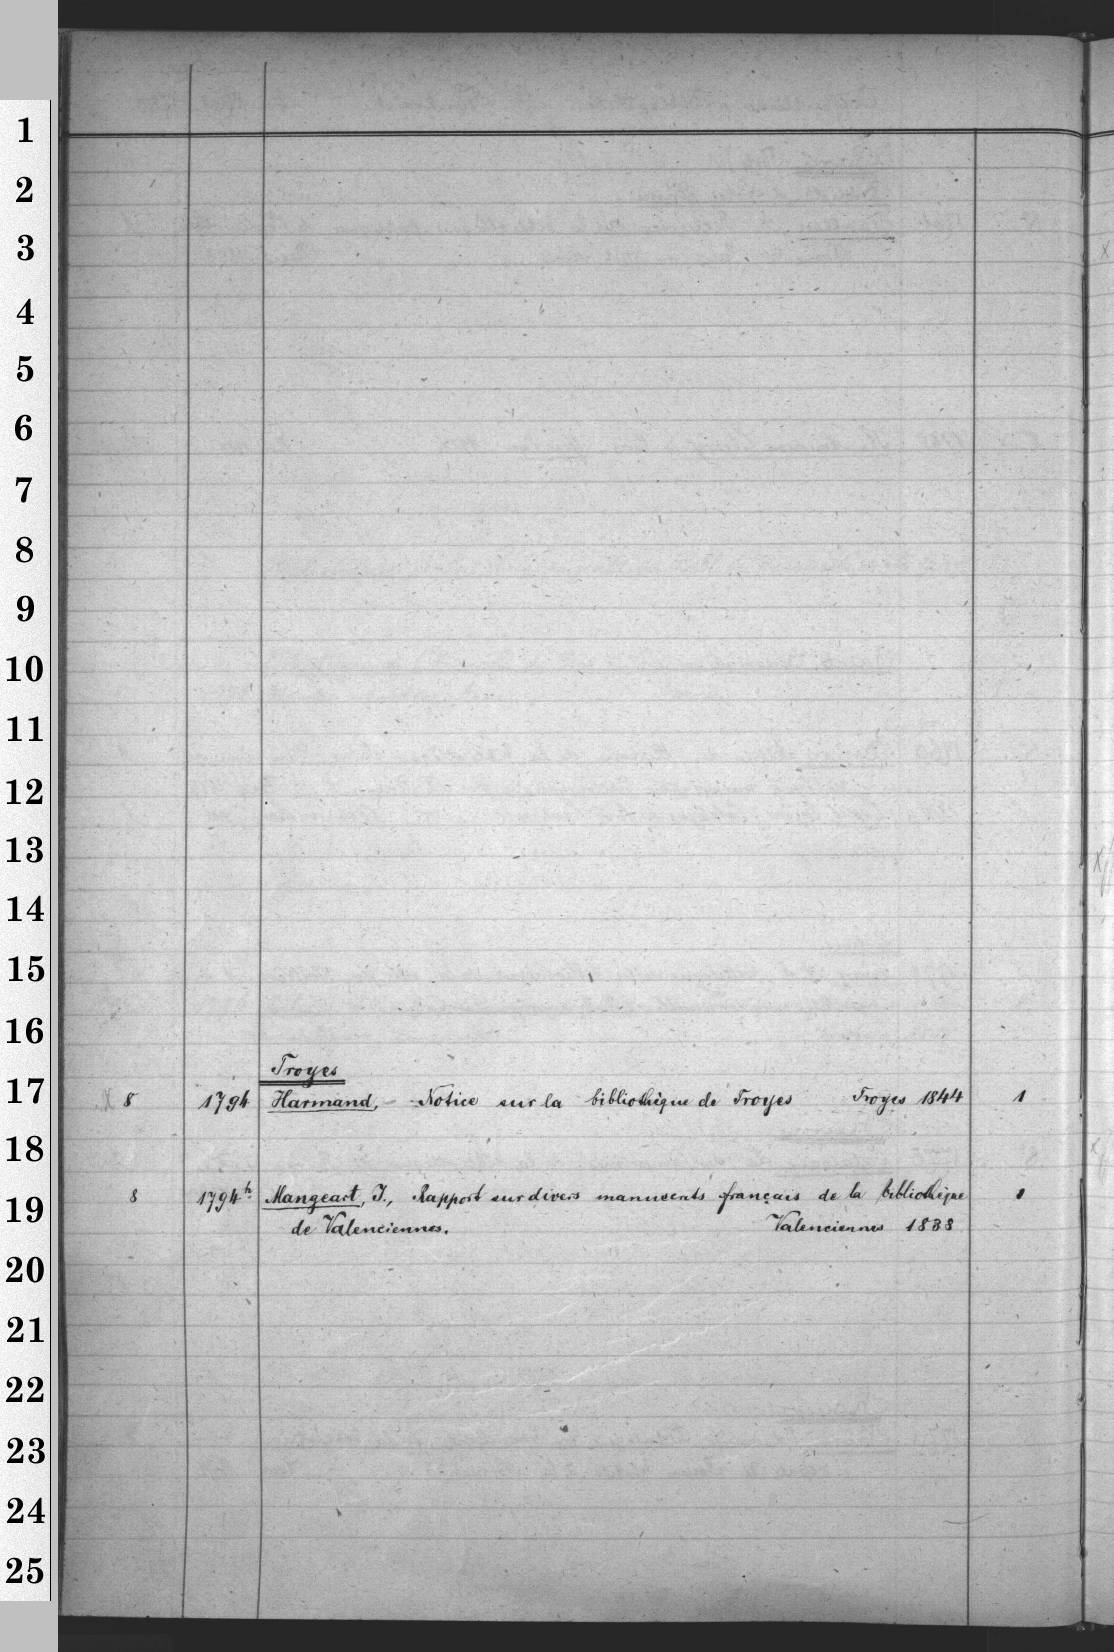 1
2
3
4
5
6
7
8
9
10
11
12
13
14
15
16
17
18
19
20
21
22
23
24
25
Troyes
8 1794 Harmand, - Notice sur la bibliothèque de Troyes Troyes 1844 1
8 1794b Mangeart, J., Rapport sur divers manuscrits français de la bibliothèque 1
de Valenciennes. Valenciennes 1838